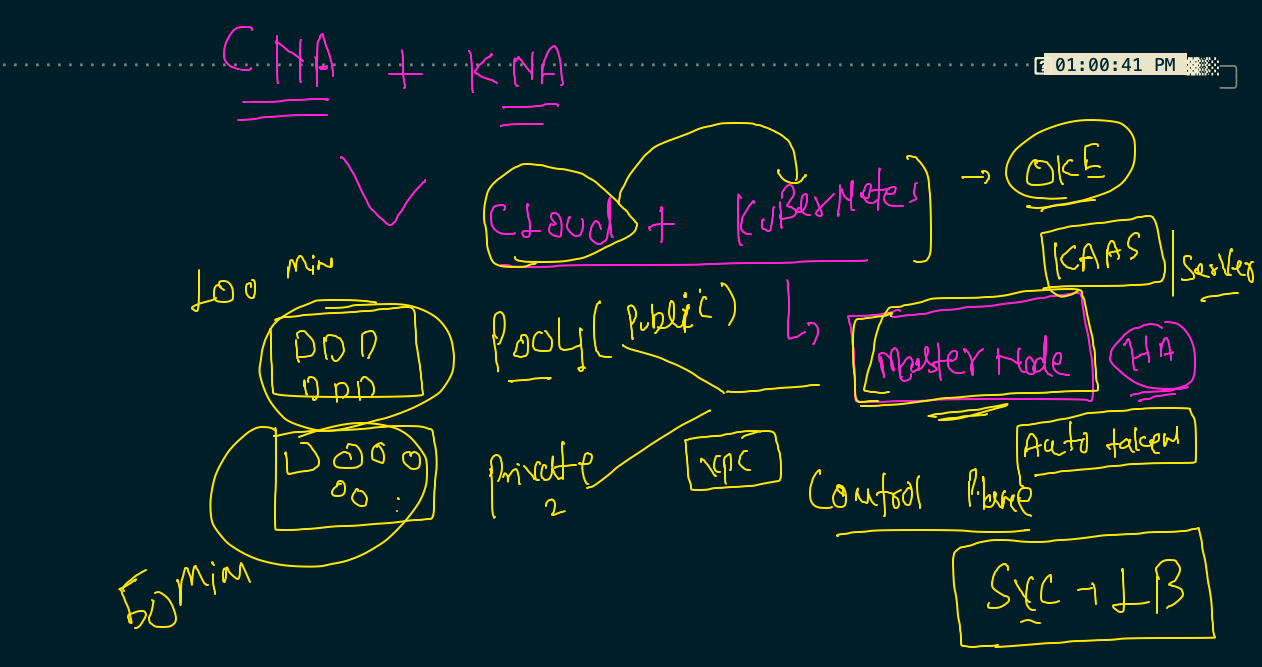 CNA + KNA
01:00:41 PM
OKE
CLoud + KuBerNetes
KAAS | Server
100 Min
Pool (Public)
Master Node
HA
DDD
DDD
Auto taken
Private
2
VPC
Control Plane
50 Min
SVC → LB